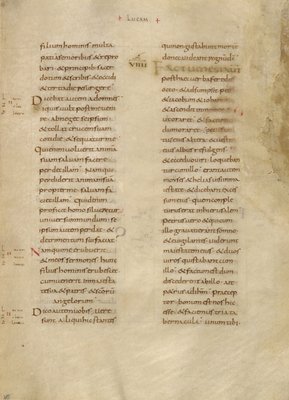 LUCAM
filium hominis multa
pati a senioribus & repro
bari & principibus sacer
dotum & scribis & occidi
& tertia die resurgere
Dicebat autem ad omnes
siquis uult post me ueni
re abneget se ipsum
& tollat crucem suam
cotidie & sequatur me
Qui enim uoluerit anima
suam saluam facere
perdet illam nam qui
perdiderit animam sua
propter me saluam fa
ci& illam Quid enim
proficit homo si lucretur
uniuersum mundum se
ipsum autem perdat &
detrimentum sui faciat
Nam qui me erubuerit
& meos sermones hunc
filius hominis erubesc&
cum uenerit in maiesta
te sua & patris & scorum
angelorum
Dico autem uobis uere
sunt aliqui hic stantes
qui non gustabunt morte
donec uideant regnu di
VIIII Factum est
post haec uerba fere dies
octo & adsumpsit petru
& iacobum & iohanne
& ascendit in monte
oraret & factum est
dum orar&
uultus eius altera & ues
eius albus refulgens
& ecce duo uiri loquebant
cum illo erant autem
in maies
tate & dicebant exces
sum eius quem comple
turus erat in hierusalem
petrus uero & qui cum
illo grauati erant somno
& euigilantes uiderunt
maiestatem eius & duos
uiros qui stabant cum
illo & factum est dum
discederent ab illo ait
petrus ad ihm praecep
tor bonum est nos hic
esse & faciamus tria ta
bernacula unum tibi